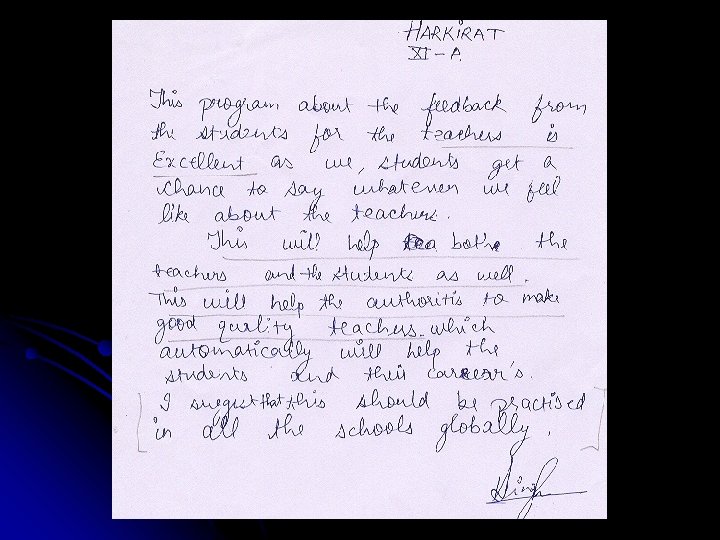 HARKIRAT
XI-A.
This program about the feedback from
the students for the teachers is
Excellent as we, students get a
chance to say whatever we feel
like about the teachers.
This will help both the
teachers and the students as well.
This will help the authoritis to make
good quality teachers which
automatically will help the
students and their career's.
I sugest that this should be practised
in all the schools globally.
Singh